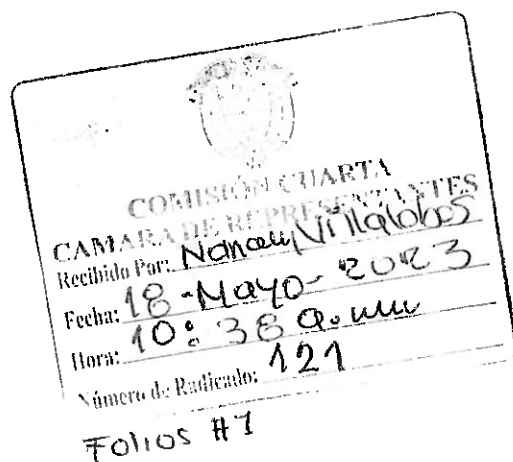 COMISIÓN CUARTA
CAMARA DE REPRESENTANTES
Recibido Por: Nancy Villalobos
Fecha: 18-Mayo-2023
Hora: 10:38 a.m
Número de Radicado: 121
Folios #1